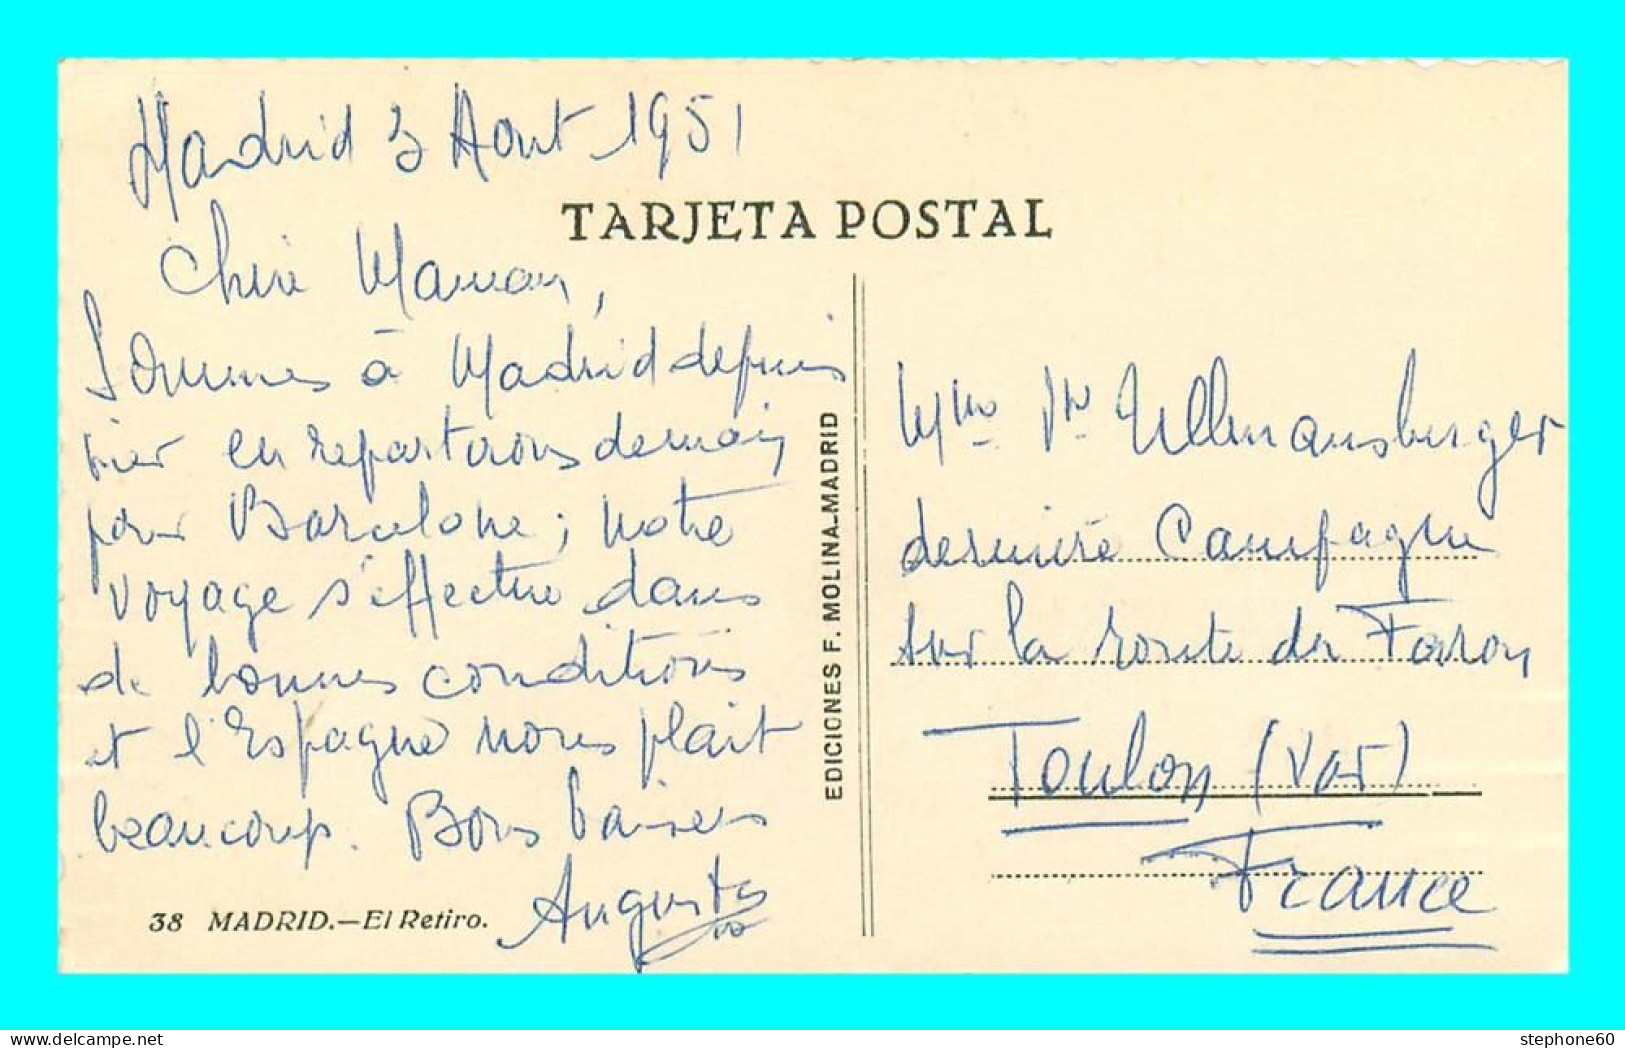 Madrid 3 Aout 1951
TARJETA POSTAL
Chère Maman,
Sommes à Madrid depuis
hier en repartirons demain
pour Barcelone; notre
voyage s'effectue dans
de bonnes conditions
et l'Espagne nous plait
beaucoup. Bons baisers
38 MADRID.—El Retiro.
EDICIONES F. MOLINA-MADRID
Mme Ullmansberger
dernière Campagne
sur la route du Faron
Toulon (Var)
France
stephone60